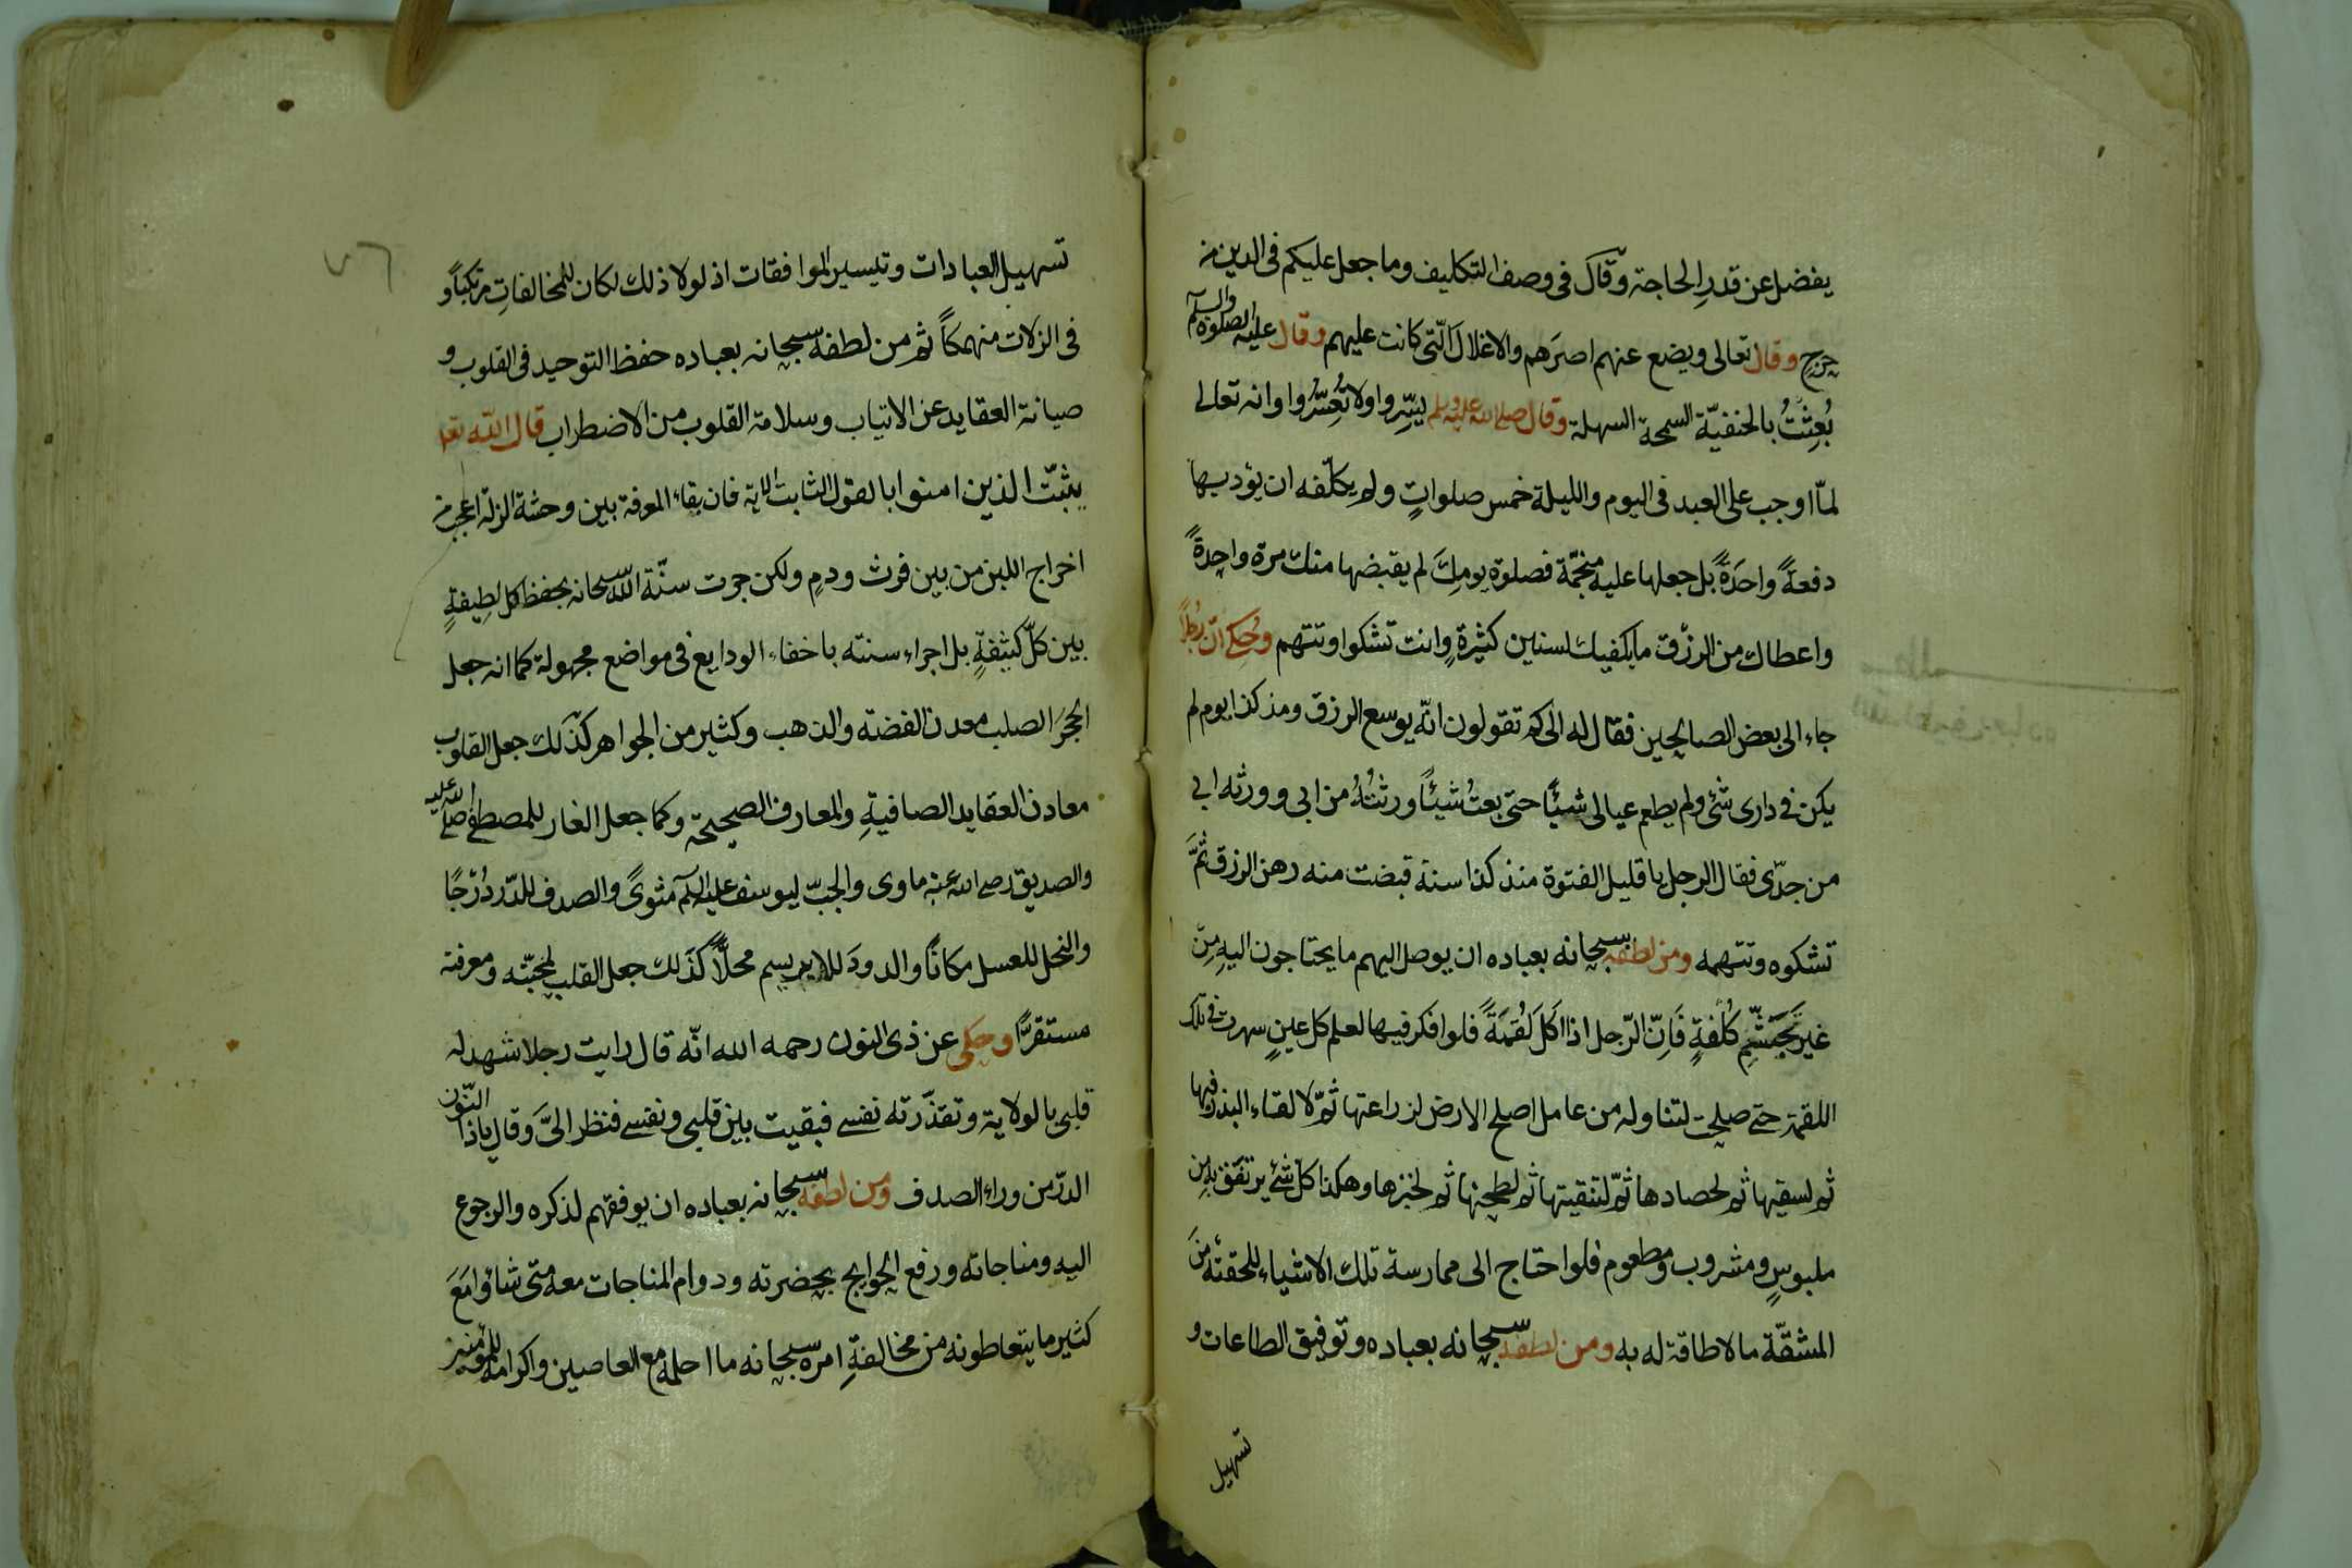 يفضل عن قدرِ الحاجة وقال فى وصف التكليف وما جعل عليكم فى الدين من
حرجٍ وقال تعالى ويضع عنهم اصرَهم والاغلالَ الّتى كانت عليهم وقال عليه الصلوة والسلم
بُعِثْتُ بالحنفيّة السمحة السهلة وقال صلى الله عليه وسلم يسِّروا ولا تُعسِّروا وانه تعالى
لمّا اوجب على العبد فى اليوم والليلة خمس صلواتٍ ولم يكلّفه ان يؤديها
دفعةً واحدَةً بل جعلها عليه منجّمة فصلوة يومِكَ لم يقبضها منك مرة واحِدةً
واعطاك من الرزق ما يكفيك لسنين كثيرةٍ وانت تشكوا وتتهم وحُكِى انّ رجُلًا
جاء الى بعض الصالحين فقال له الى كم تقولون انّه يوسع الرزق ومذ كذا يوم لم
يكن فى دارى شئ ولم يطعم عيالى شيئًا حتى بعتُ شيئًا ورثتُهُ من ابى وورثه ابى
من جدّى فقال الرجل يا قليل الفتوة منذ كذا سنة قبضت منه رهن الرزق ثمَّ
تشكوه وتتهمه ومن لطفه سبحانه بعباده ان يوصل اليهم ما يحتاجون اليهِ مِنْ
غير تَجَشّمِ كُلْفةٍ فَاِنّ الرّجل اذا اكَلَ لُقمَةً فلو افكر فيها لعلم كل عينٍ سهرت فى تلك
اللقمة حتى صلحت لتناوله من عامل اصلح الارض لزراعتها ثمّ لالقاء البذر فيها
ثم لسقيها ثم لحصادها ثمّ لتنقيتها ثم لطحنها ثم لخبزها وهكذا كلّ شئ يرتفق به من
ملبوسٍ ومشروب ومطعوم فلو احتاج الى ممارسة تلك الاشياء للحقته مِنَ
المشقّة ما لا طاقة له به ومن لطفه سبحانه بعباده وتوفيق الطاعات و
تسهيل
تسهيل العبادات وتيسير الموافقات اذ لولا ذلك لكان للمخالفاتِ مرتكبًا و
فى الزلات منهمكًا ثم من لطفه سبحانه بعباده حفظ التوحيد فى القلوب و
صيانة العقايد عن الاتياب وسلامة القلوب من الاضطراب قال الله تعا
يثبّت الذين امنوا بالقول الثابت الاية فان بقاء المعرفة بين وحشة الزلّة اعجب من
اخراج اللبن من بين فرث ودمٍ ولكن جرت سنّة الله سبحانه بحفظ كل لطِيفةٍ
بين كلّ كثيفةٍ بل اجراء سنته باخفاء الودايع فى مواضع مجهولة كما انه جعل
الحجرَ الصلب معدن الفضته والذهب وكثير من الجواهر كذَلك جعل القلوب
معادن العقايد الصافيةِ والمعارف الصحيحة وكما جعل الغار للمصطفى صلى الله عليه
والصديق رضى الله عنه ماوى والجبّ ليوسف عليه السلم مثوىً والصدف للدّر دُرْجًا
والنحل للعسل مكانًا والدودَ للابريسم محلًّا كذَلك جعل القلب لمحبّته ومعرفته
مستقرًّا وحكى عن ذى النون رحمه الله انّه قال رايت رجلا شهد له
قلبى بالولاية وتقذّرته نفسى فبقيت بين قلبى ونفسى فنظر الىَّ وقال ياذا النّون
الدرّ من وراء الصدف ومن لطفه سبحانه بعباده ان يوفقهم لذكره والرجوع
اليه ومناجاته ورفع الحوايج بحضرته ودوام المناجات معه متى شاؤا مَعَ
كثير ما يتعاطونه من مخالفةِ امره سبحانه ما احلمه مع العاصين واكرامه للمؤمنين